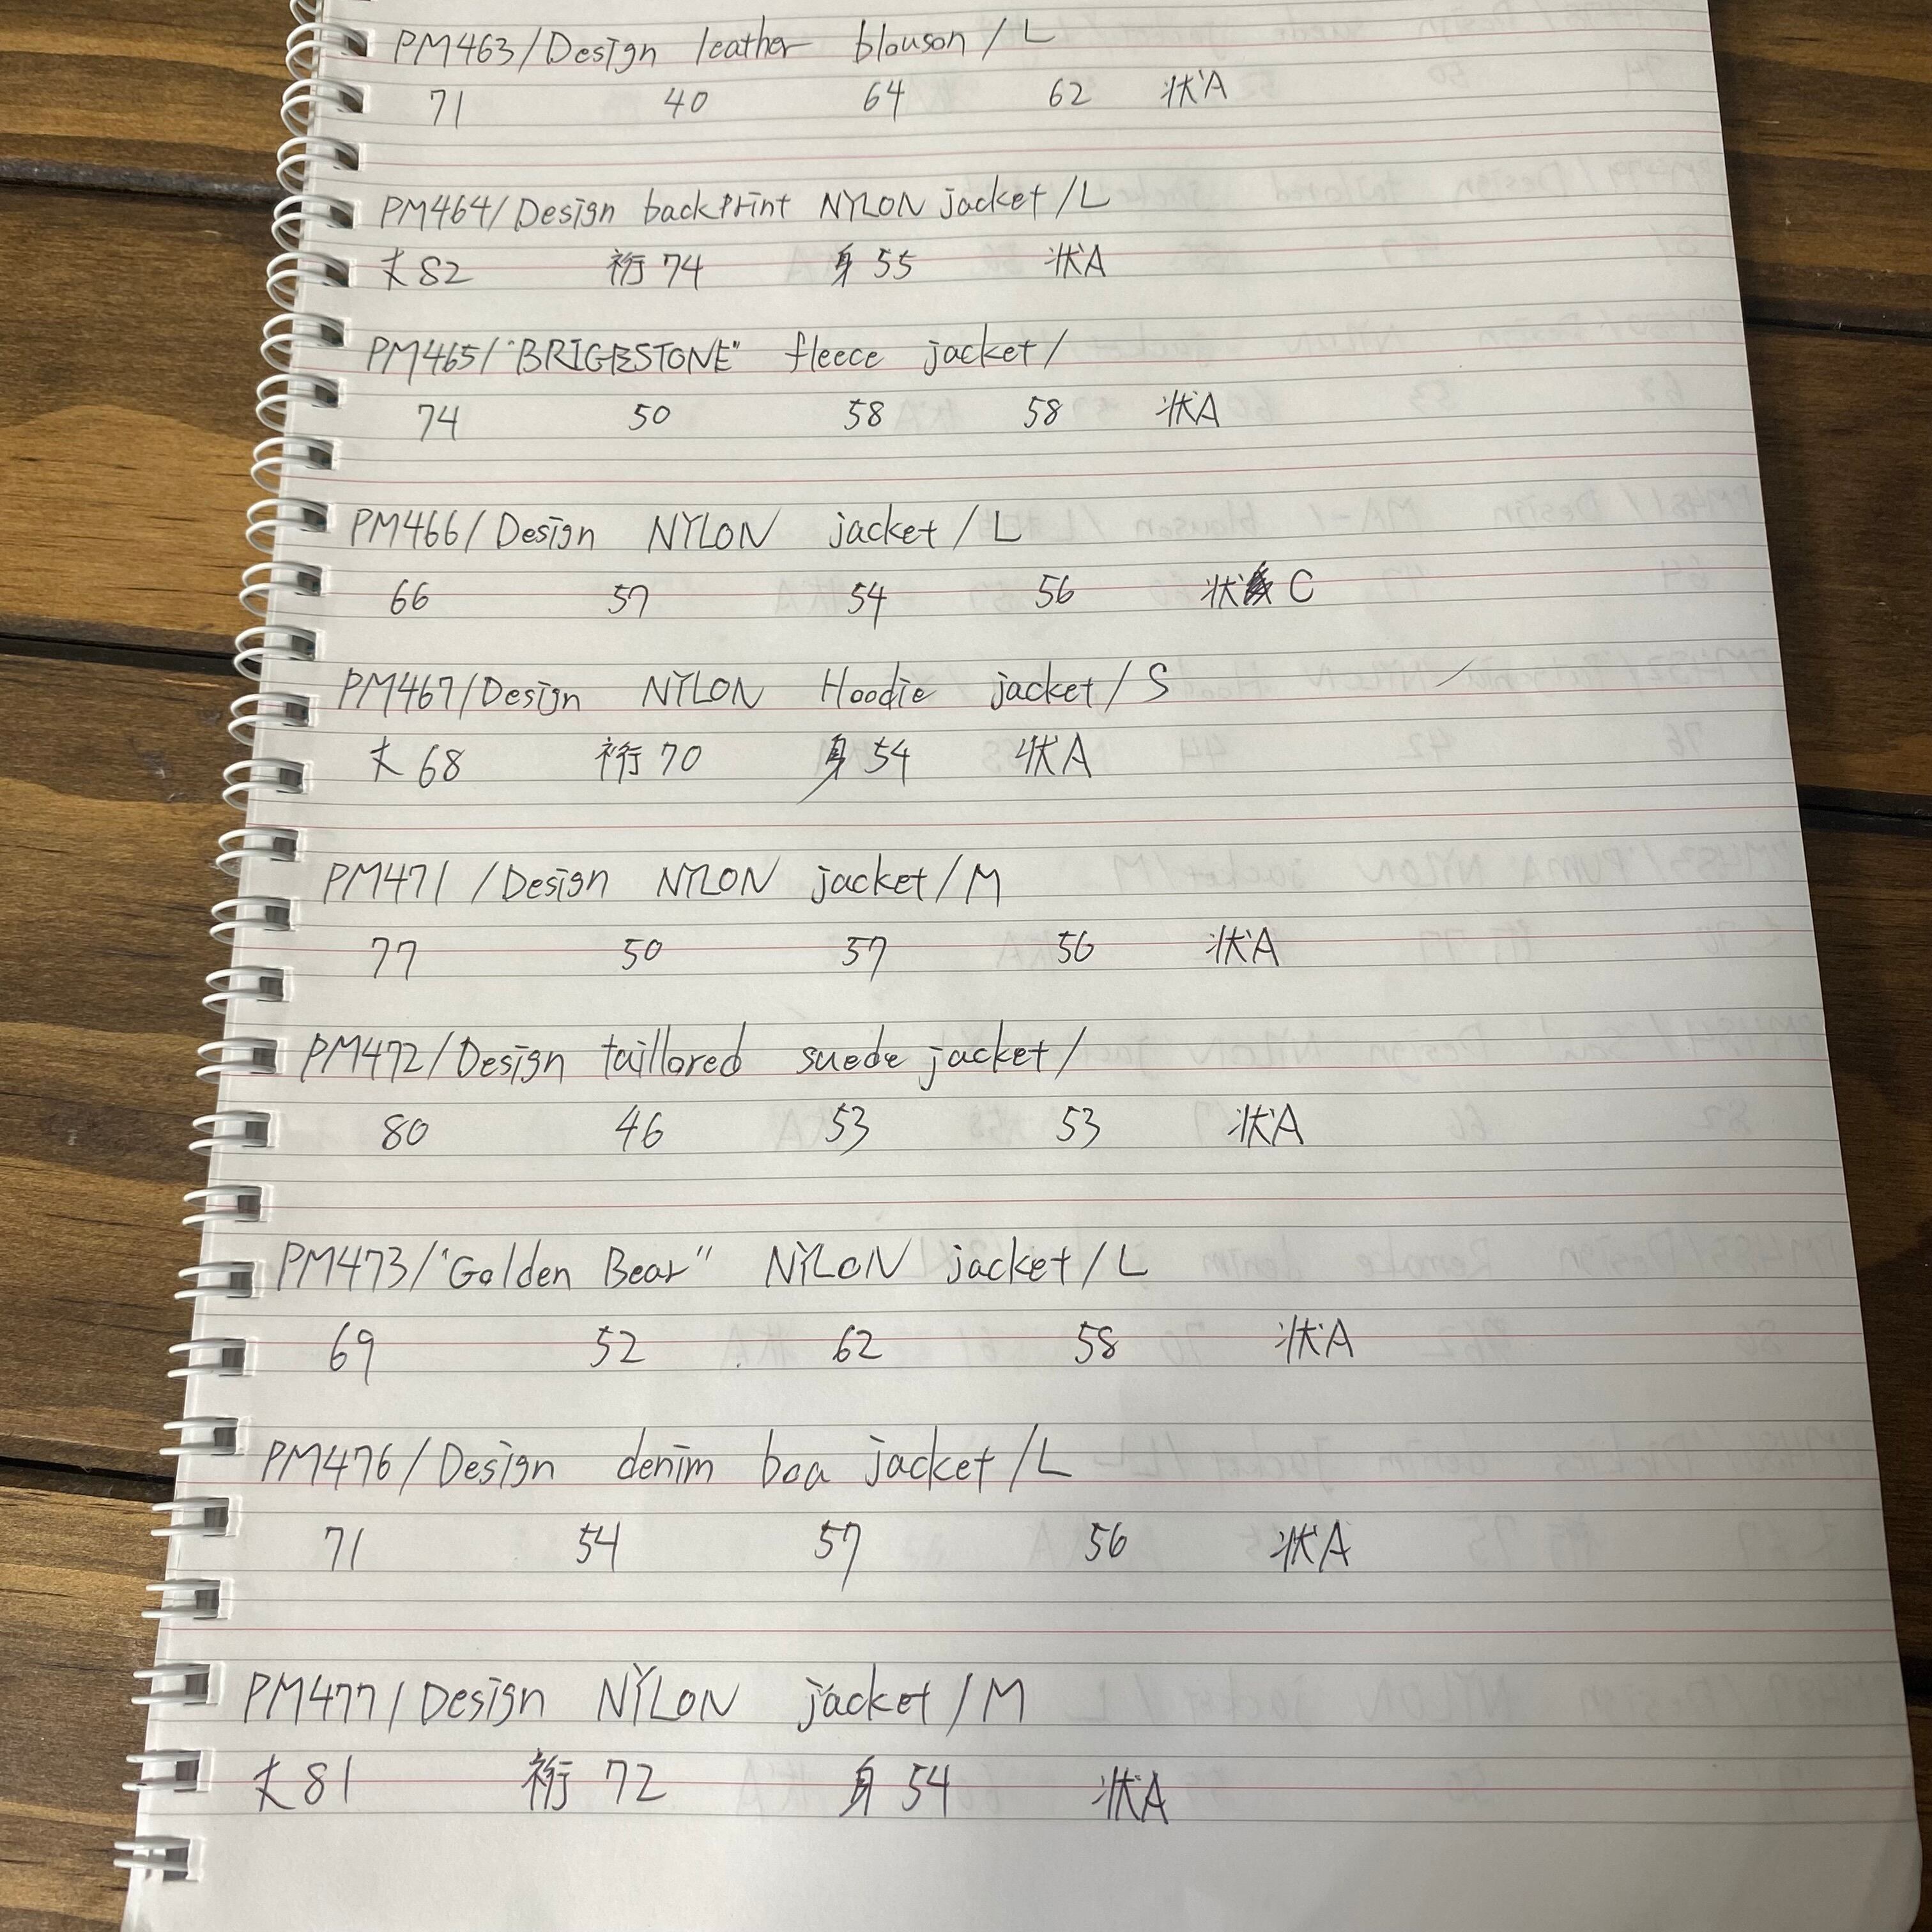 PM463/Design leather blouson/L
71 40 64 62 状A
PM464/Design backprint NYLON jacket/L
丈82 裄74 身55 状A
PM465/"BRIGESTONE" fleece jacket/
74 50 58 58 状A
PM466/Design NYLON jacket/L
66 57 54 56 状C
PM467/Design NYLON Hoodie jacket/S
丈68 裄70 身54 状A
PM471/Design NYLON jacket/M
77 50 57 56 状A
PM472/Design taillored suede jacket/
80 46 53 53 状A
PM473/"Golden Bear" NYLON jacket/L
69 52 62 58 状A
PM476/Design denim boa jacket/L
71 54 57 56 状A
PM477/Design NYLON jacket/M
丈81 裄72 身54 状A